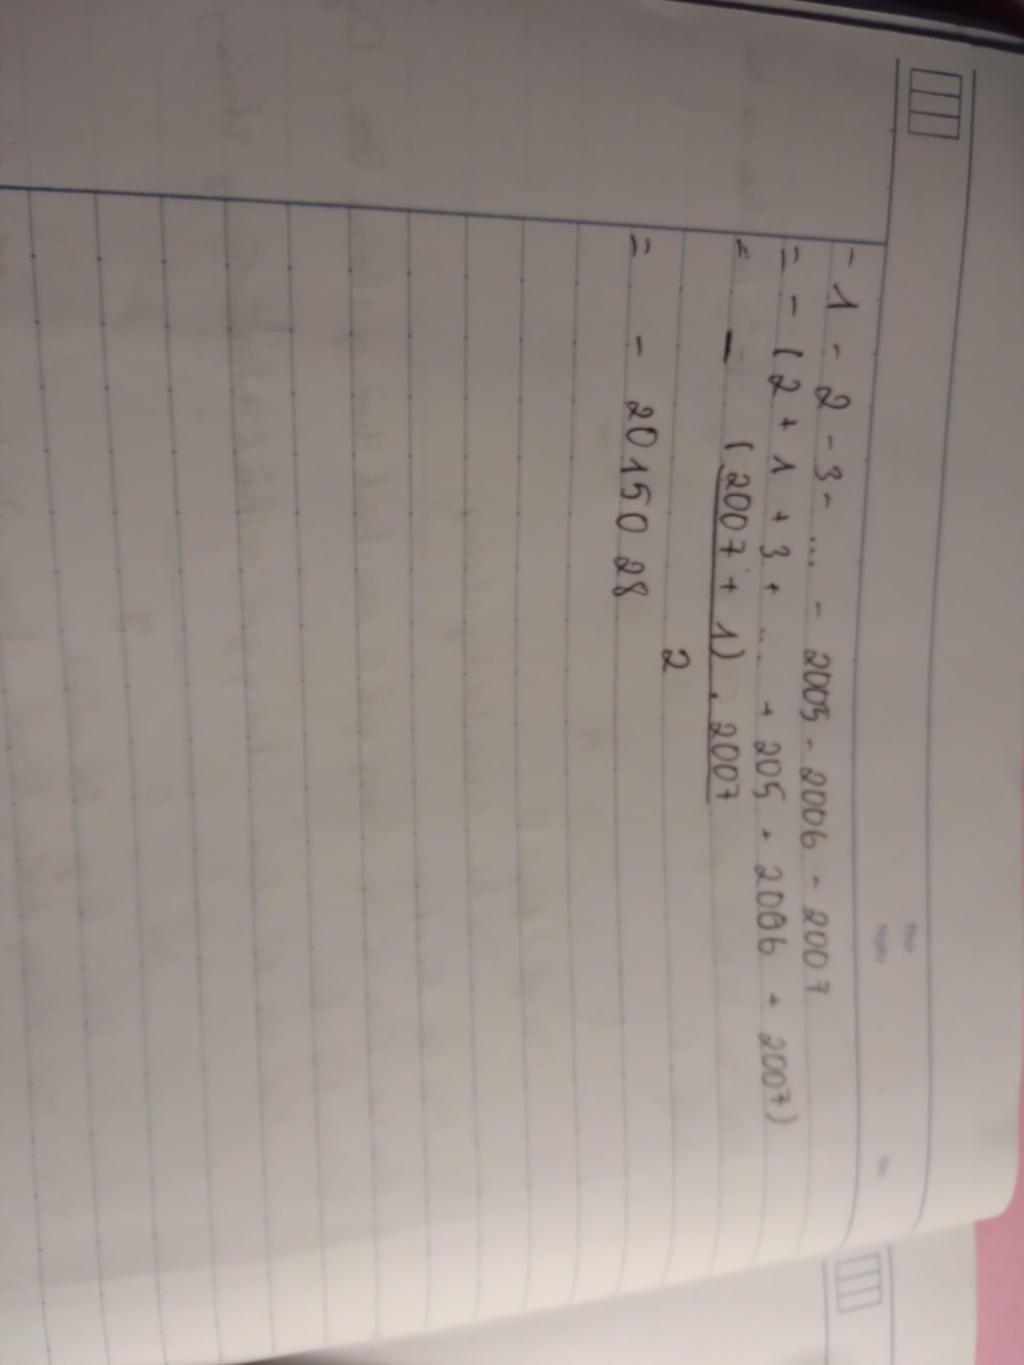 Thứ
Ngày
No.
- 1 - 2 - 3 - ... - 2005 - 2006 - 2007
= - (2 + 1 + 3 + ... + 205 + 2006 + 2007)
= - (2007 + 1) . 2007
2
= - 2015028